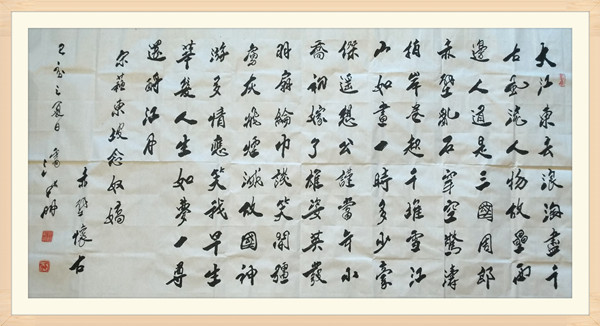 大江東去浪淘盡千
古風流人物故壘西
邊人道是三國周郎
赤壁亂石穿空驚濤
拍岸卷起千堆雪江
山如畫一時多少豪
傑遥想公瑾當年小
喬初嫁了雄姿英發
羽扇綸巾談笑間疆
虜灰飛煙滅故國神
游多情應笑我早生
華髮人生如夢一尊
還酹江月
宋蘇東坡念奴嬌
赤壁懷古
之夏日